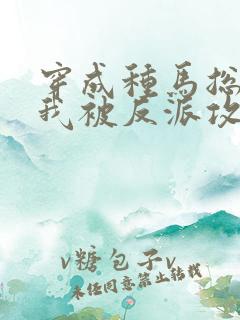 穿成種馬捴
我被反派攻
v糖包子v
未任同意禁止转载